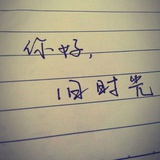 你好,
旧时光